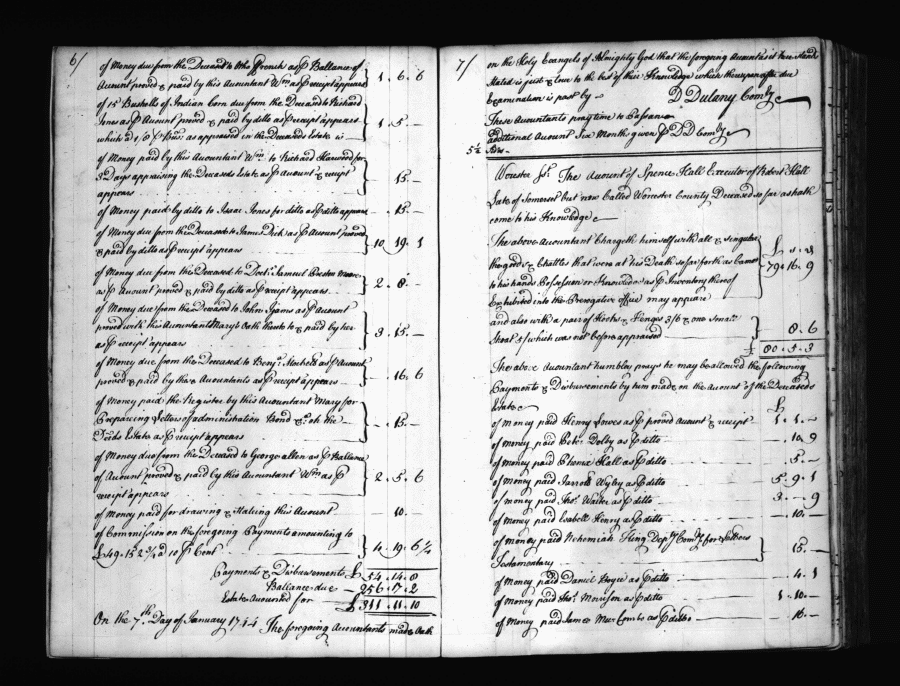 6/
of Money due from the Deceased to Otho French as ⅌ Ballance of
Account proved & paid by this Accountant Wm as ⅌ receipt appears } 1 . 6 . 6
of 15 Bushells of Indian Corn due from the Deceased to Richard
Jones as ⅌ Account proved & paid by ditto as ⅌ receipt appears
which a 1/8 ⅌ Bus: as appraised in the Deceaseds Estate is } 1 . 5 . —
of Money paid by this Accountant Wm to Richard Harwood for
3 Days appraising the Deceaseds Estate as ⅌ Account & receipt
appears } 15 . —
of Money paid by ditto to Isaac Jones for ditto as ⅌ ditto appears — . 15 . —
of Money due from the Deceased to James Dick as ⅌ Account proved
& paid by ditto as ⅌ receipt appears } 10 . 19 . 1
of Money due from this Deceased to Doctr Samuel Preston Moore
as ⅌ Account proved & paid by ditto as ⅌ receipt appears } 2 . 8 . —
of Money due from the Deceased to John Ijams as ⅌ Account
proved with this Accountant Marys Oath thereto & paid by her
as ⅌ receipt appears } 3 . 15 . —
of Money due from the Deceased to Benja as ⅌ Account
proved & paid by these Accountants as ⅌ receipt appears } — . 16 . 6
of Money paid the Register by this Accountant Mary for
Preparing Letters of administration Bond &c on the
Deceds Estate as ⅌ receipt appears } — . 15 . —
of Money due from the Deceased to George Allen as ⅌ Ballance
of Account proved & paid by this Accountant Wm as ⅌
receipt appears } 2 . 5 . 6
of Money paid for drawing & Stating this Account — . 10 . —
of Commission on the foregoing Payments amounting to
£49 . 15 2 ¾ a 10 ⅌ Cent } 4 . 19 . 6 ¼
Payments & Disbursements £ 54 . 14 . 8
Ballance due — 256 . 17 . 2
Estate Accounted for £ 311 . 11 . 10
On the 7th Day of January 1744 The foregoing Accountants made Oath
7/
on the Holy Evangels of Almighty God that the foregoing Account as it here stand
Stated is just & true to the best of their Knowledge which thereupon after due
Examination is past by — D Dulany Comry
These Accountants pray time to Pass an
additional Account Six Months given ⅌ D D Comry
5 ½ Sides
Worcester Ss. The Account of Spence Hall Executor of Robert Hall
Late of Somerset but now Called Worcester County Deceased so far as hath
come to his Knowledge
The above Accountant Chargeth himself with all & singular
the goods & Chattles that were at his Death so far forth as Came
to his hands Possession or Knowledge as ⅌ Inventory thereof
Exhibited into the Prerogative office may appear } £ s d 79 . 16 . 9
and also with a pair of Hooks & Hinges 3/6 & one small
Shoat 5/ which was not before appraised } 8 . 6
£ 80 . 5 . 3
The above Accountant humbly prays he may be allowed the following
Payments & Disbursements by him made on the Account of the Deceaseds
Estate £
of Money paid Henry Lowes as ⅌ proved Account & receipt 1 . 1 . —
of Money paid Petr Dolby as ⅌ ditto — . 10 . 9
of money paid Phenix Hall as ⅌ ditto . 5 . —
of Money paid Jarrott Wyley as ⅌ ditto 5 . 9 . 1
of money paid Thos Waite as ⅌ ditto 3 . — 9
of Money paid Isabell Henry as ⅌ ditto — . 10 . —
of Money paid Nehemiah King Depy Comry for Letters
Testamentary } 15 . —
of Money paid Daniel Boyce as ⅌ ditto — . 4 . 1
of Money paid Thos Morrison as ⅌ ditto 1 . 10 . —
of Money paid James MacCombs as ⅌ ditto — . 10 . —